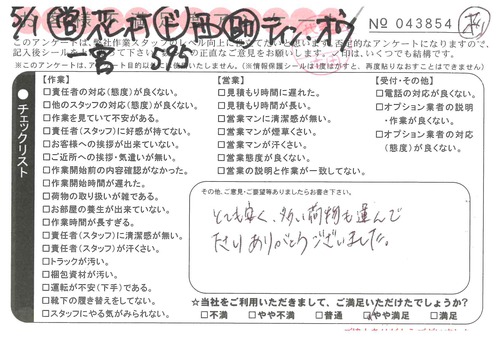 5/1 営 平村 宮 助 ティン・オン
№ 043854
このアンケートは、弊社作業スタッフのレベル向上に役立てたいと思います。否定的なアンケートになりますので、
記入後シールを
の正直なご意見をお願いします。
は、いくつでも結構です。
※このアンケートは、アンケート目的以
いたしません。(※情報保護シールは1度はがすと、再度貼りなおすことはできません)
チェックリスト
【作業】
□責任者の対応(態度)が良くない。
□他のスタッフの対応(態度)が良くない。
□作業を見ていて不安がある。
□責任者(スタッフ)に好感が持てない。
□お客様への挨拶が出来ていない。
□ご近所への挨拶・気遣いが無い。
□作業開始前の内容確認がなかった。
□作業開始時間が遅れた。
□荷物の取り扱いが雑である。
□お部屋の養生が出来ていない。
□作業時間が長すぎる。
□責任者(スタッフ)に清潔感が無い。
□責任者(スタッフ)が汗くさい。
□トラックが汚い。
□梱包資材が汚い。
□運転が不安(下手)である。
□靴下の履き替えをしてない。
□スタッフにやる気がみられない。
【営業】
□見積もり時間に遅れた。
□見積もり時間が長い。
□営業マンに清潔感が無い。
□営業マンが煙草くさい。
□営業マンが汗くさい。
□営業態度が良くない。
□営業の説明と作業が一致してない。
【受付・その他】
□電話の対応が良くない。
□オプション業者の説明
・作業が良くない。
□オプション業者の対応
(態度)が良くない。
その他、ご意見・ご要望等ありましたらお書き下さい。
とても安く、多い荷物も運んで
下さりありがとうございました。
☆当社をご利用いただきまして、ご満足いただけたでしょうか?
□不満 □やや不満 □普通 □やや満足 □満足